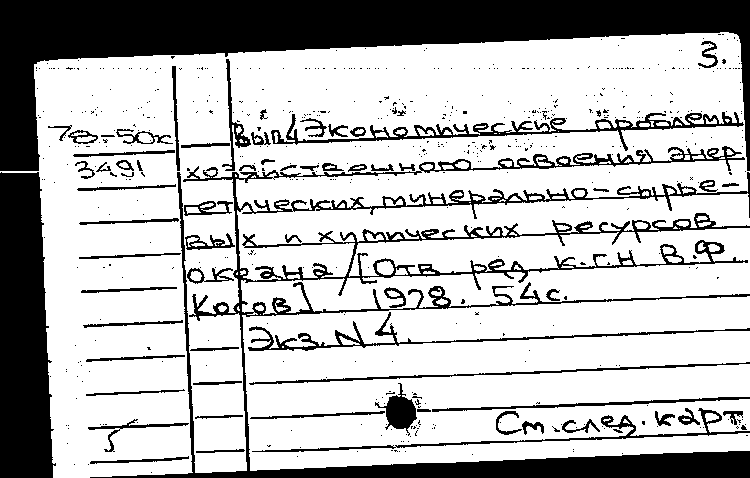 3.
78-50к Вып.4 Экономические проблемы
3491 хозяйственного освоения энер
гетических, минерально-сырье-
вых и химических ресурсов
океана / [Отв. ред. к.г.н В.Ф.
Косов]. 1978. 54с.
Экз. N 4.
См. след. карт.